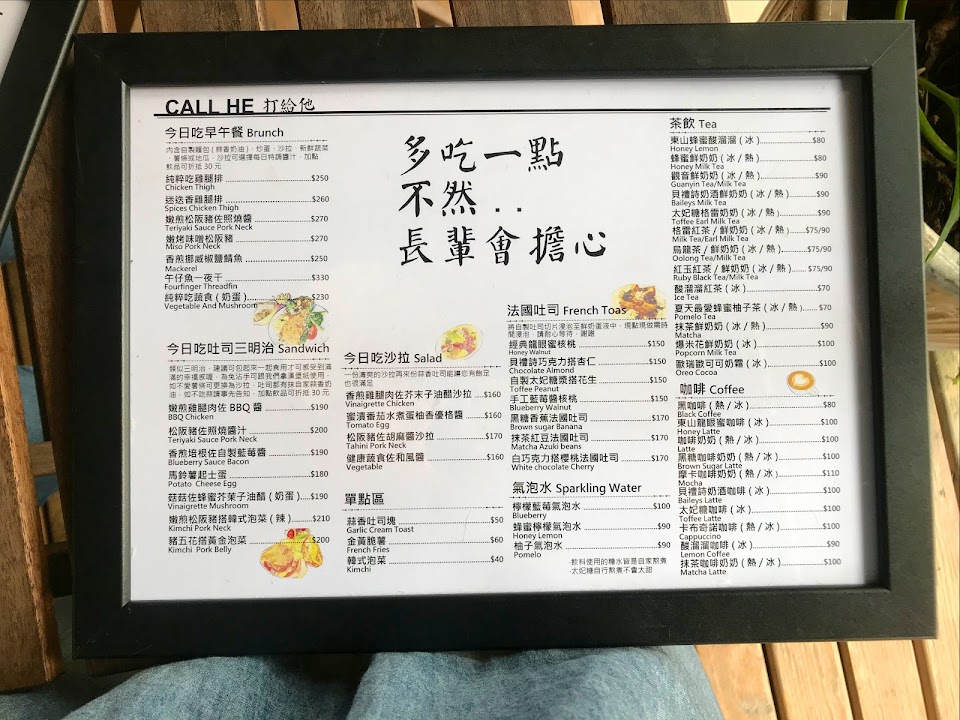 CALL HE 打給他
今日吃早午餐 Brunch
內含自製麵包 ( 蒜香奶油 )，炒蛋，沙拉，新鮮蔬菜
，薯條或地瓜，沙拉可選擇每日特調醬汁，加點
飲品可折抵 30 元
純粹吃雞腿排 $250
Chicken Thigh
迷迭香雞腿排 $260
Spices Chicken Thigh
嫩煎松阪豬佐照燒醬 $270
Teriyaki Sauce Pork Neck
嫩烤味噌松阪豬 $270
Miso Pork Neck
香煎挪威椒鹽鯖魚 $250
Mackerel
午仔魚一夜干 $330
Fourfinger Threadfin
純粹吃蔬食 ( 奶蛋 ) $230
Vegetable And Mushroom
今日吃吐司三明治 Sandwich
類似三明治，建議可包起來一起食用才可感受到滿
滿的幸福感喔，為免沾手可跟我們拿漢堡紙使用，
如不愛薯條可更換為沙拉，吐司都有抹自家蒜香奶
油，如不吃蒜請事先告知，加點飲品可折抵 30 元
嫩煎雞腿肉佐 BBQ 醬 $190
BBQ Chicken
松阪豬佐照燒醬汁 $200
Teriyaki Sauce Pork Neck
香煎培根佐自製藍莓醬 $190
Blueberry Sauce Bacon
馬鈴薯起士蛋 $180
Potato Cheese Egg
菇菇佐蜂蜜芥茉子油醋 ( 奶蛋 ) $190
Vinaigrette Mushroom
嫩煎松阪豬搭韓式泡菜 ( 辣 ) $210
Kimchi Pork Neck
豬五花搭黃金泡菜 $200
Kimchi Pork Belly
多吃一點
不然 . .
長輩會擔心
今日吃沙拉 Salad
一份清爽的沙拉再來份蒜香吐司能讓您有飽足
也很滿足
香煎雞腿肉佐芥末子油醋沙拉 $160
Vinaigrette Chicken
蜜漬番茄水煮蛋柚香優格醬 $160
Tomato Egg
松阪豬佐胡麻醬沙拉 $170
Tahini Pork Neck
健康蔬食佐和風醬 $160
Vegetable
單點區
蒜香吐司塊 $50
Garlic Cream Toast
金黃脆薯 $60
French Fries
韓式泡菜 $40
Kimchi
法國吐司 French Toas
將自製吐司切片浸泡至鮮奶蛋液中，現點現做需時
間浸泡，請耐心等待，謝謝
經典龍眼蜜核桃 $150
Honey Walnut
貝禮詩巧克力搭杏仁 $150
Chocolate Almond
自製太妃糖漿搭花生 $150
Toffee Peanut
手工藍莓醬核桃 $150
Blueberry Walnut
黑糖香蕉法國吐司 $170
Brown sugar Banana
抹茶紅豆法國吐司 $170
Matcha Azuki beans
白巧克力搭櫻桃法國吐司 $170
White chocolate Cherry
氣泡水 Sparkling Water
檸檬藍莓氣泡水 $100
Blueberry
蜂蜜檸檬氣泡水 $90
Honey Lemon
柚子氣泡水 $90
Pomelo
-飲料使用的糖水皆是自家熬煮
-太妃糖自行熬煮不會太甜
茶飲 Tea
東山蜂蜜酸溜溜 ( 冰 ) $80
Honey Lemon
蜂蜜鮮奶奶 ( 冰 / 熱 ) $80
Honey Milk Tea
觀音鮮奶奶 ( 冰 / 熱 ) $90
Guanyin Tea/Milk Tea
貝禮詩奶酒鮮奶奶 ( 冰 ) $90
Baileys Milk Tea
太妃糖格雷奶奶 ( 冰 / 熱 ) $90
Toffee Earl Milk Tea
格雷紅茶 / 鮮奶奶 ( 冰 / 熱 ) $75/90
Milk Tea/Earl Milk Tea
烏龍茶 / 鮮奶奶 ( 冰 / 熱 ) $75/90
Oolong Tea/Milk Tea
紅玉紅茶 / 鮮奶奶 ( 冰 / 熱 ) $75/90
Ruby Black Tea/Milk Tea
酸溜溜紅茶 ( 冰 ) $70
Ice Tea
夏天最愛蜂蜜柚子茶 ( 冰 / 熱 ) $70
Pomelo Tea
抹茶鮮奶奶 ( 冰 / 熱 ) $90
Matcha
爆米花鮮奶奶 ( 冰 / 熱 ) $100
Popcorn Milk Tea
歐瑞歐可可奶霜 ( 冰 ) $100
Oreo Cocoa
咖啡 Coffee
黑咖啡 ( 熱 / 冰 ) $80
Black Coffee
東山龍眼蜜咖啡 ( 冰 ) $100
Honey Latte
咖啡奶奶 ( 熱 / 冰 ) $100
Latte
黑糖咖啡奶奶 ( 熱 / 冰 ) $100
Brown Sugar Latte
摩卡咖啡奶奶 ( 熱 / 冰 ) $110
Mocha
貝禮詩奶酒咖啡 ( 冰 ) $100
Baileys Latte
太妃糖咖啡 ( 冰 ) $100
Toffee Latte
卡布奇諾咖啡 ( 熱 / 冰 ) $100
Cappuccino
酸溜溜咖啡 ( 冰 ) $90
Lemon Coffee
抹茶咖啡奶奶 ( 熱 / 冰 ) $100
Matcha Latte